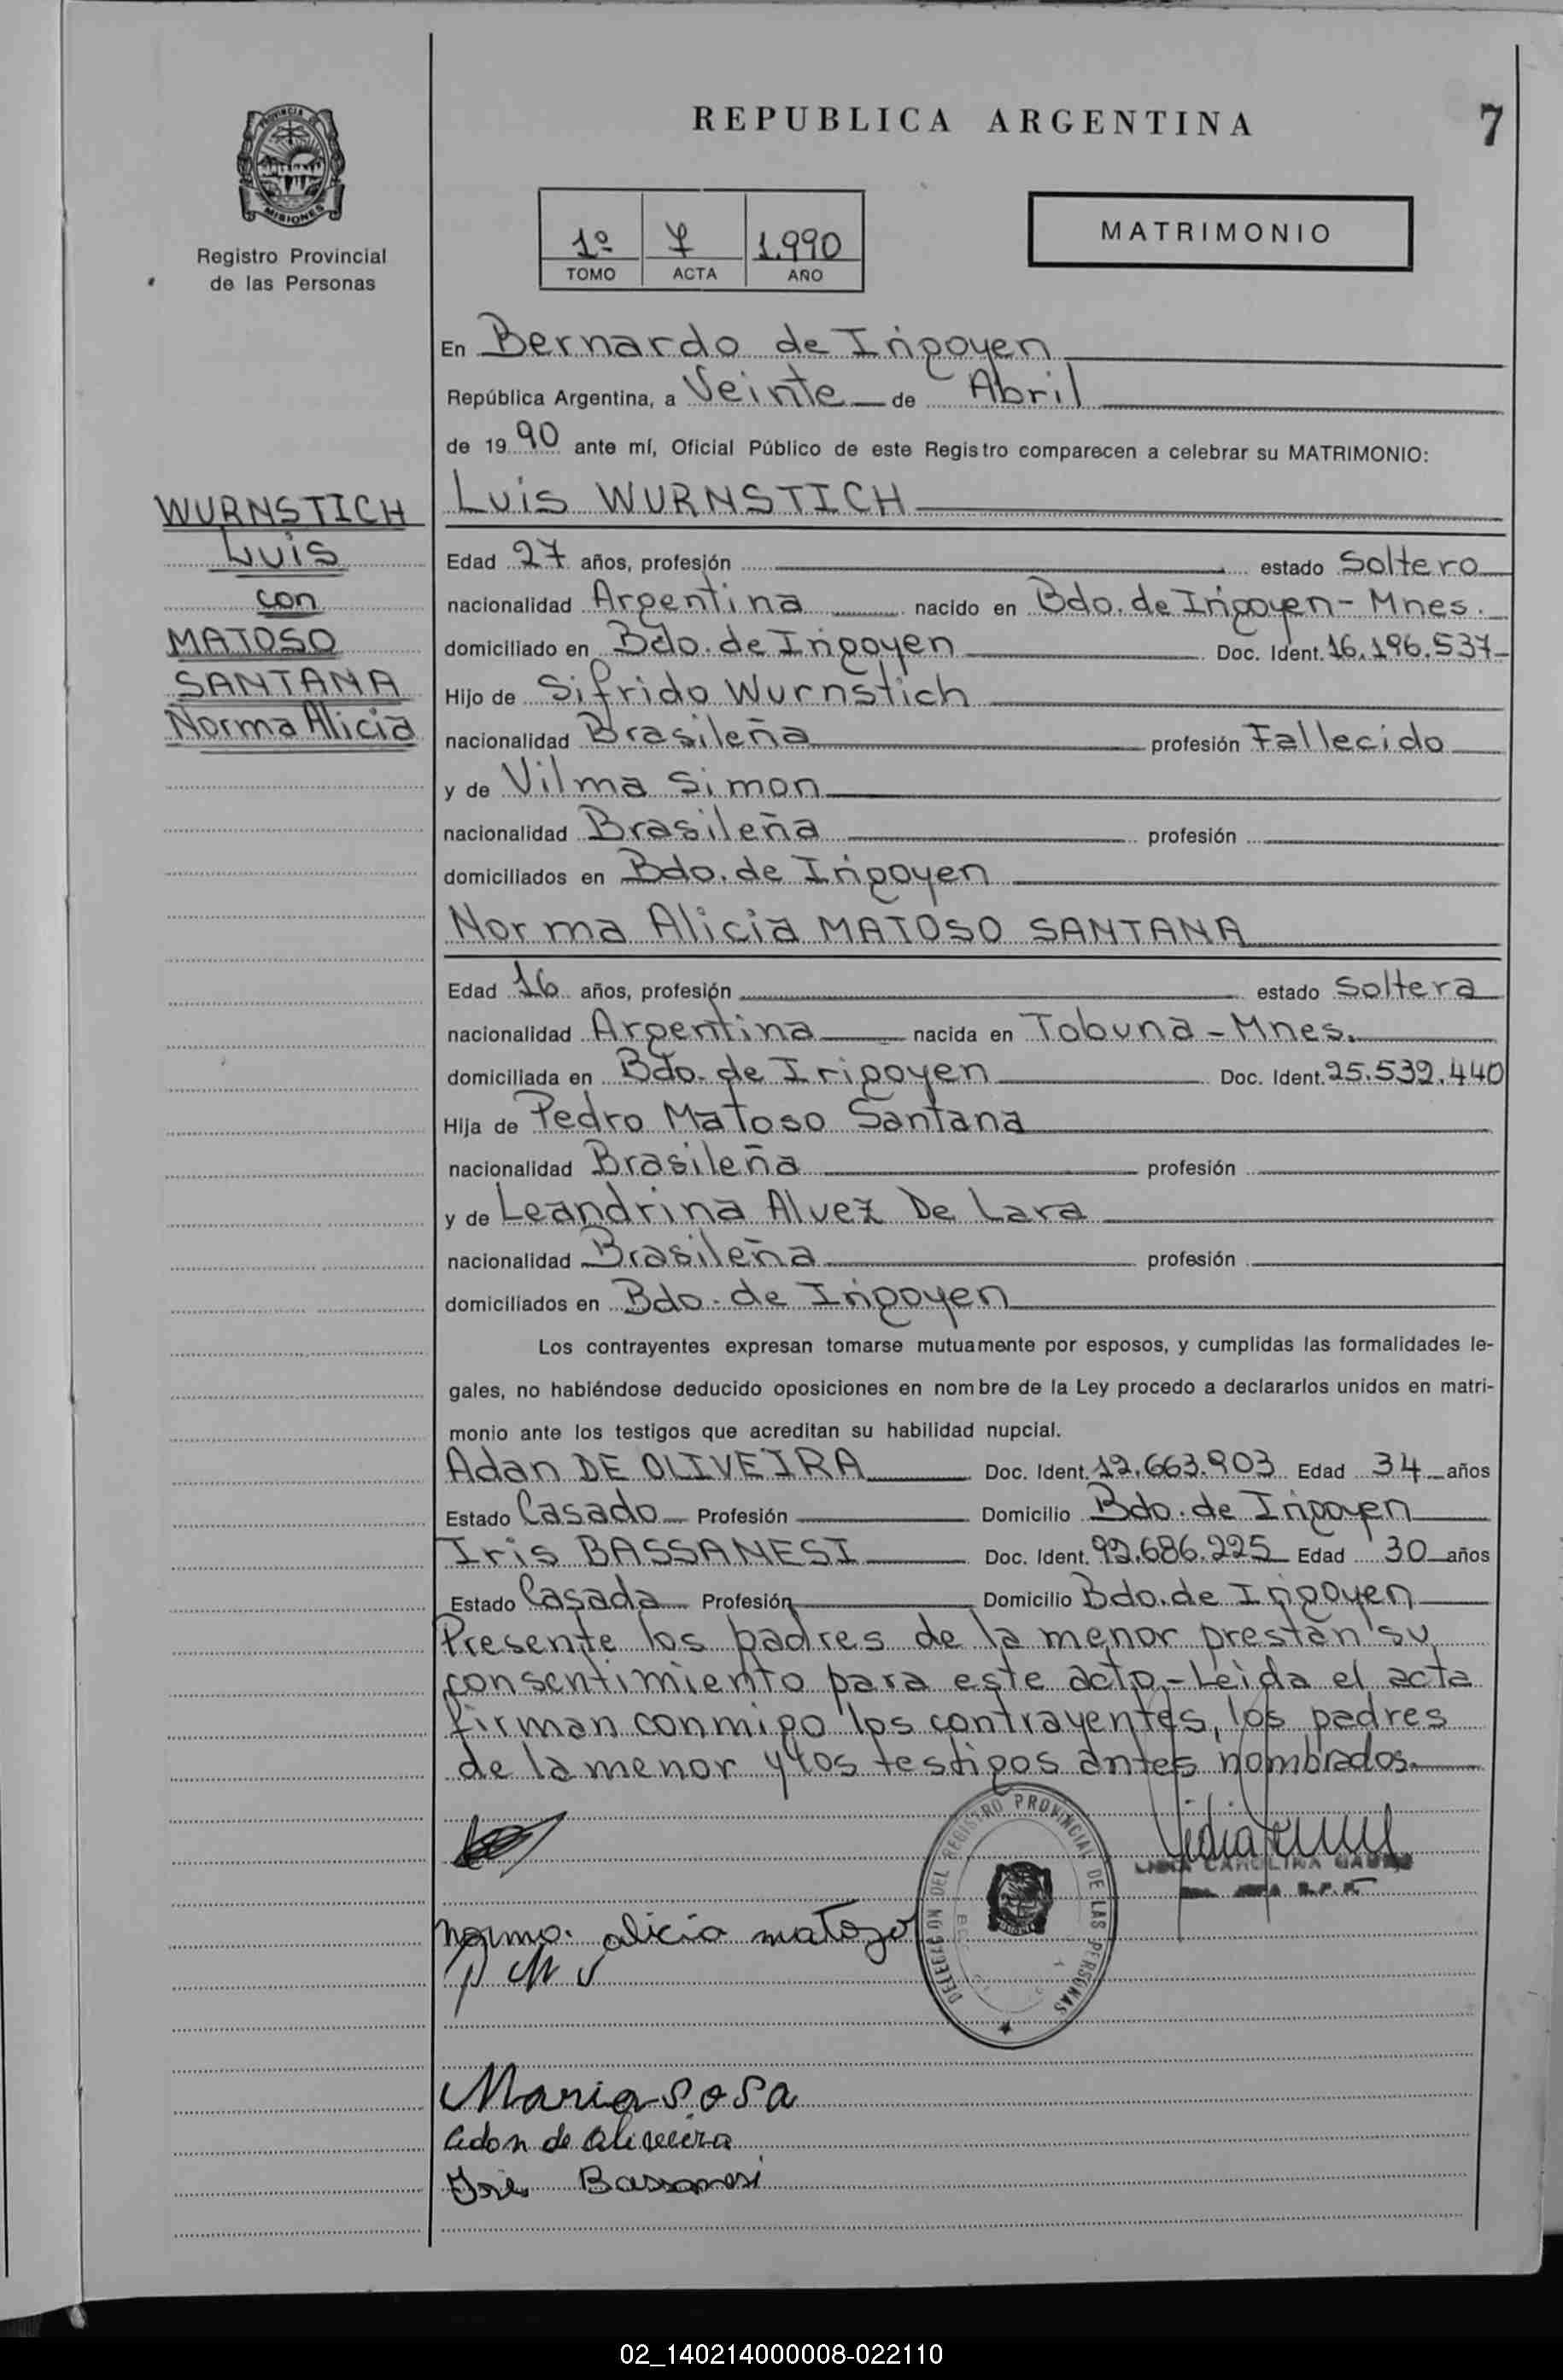 REPUBLICA ARGENTINA
7
PROVINCIA DE
MISIONES
Registro Provincial
de las Personas
1º 7 1.990
TOMO ACTA AÑO
MATRIMONIO
WURNSTICH
Luis
con
MATOSO
SANTANA
Norma Alicia
En Bernardo de Irigoyen
República Argentina, a Veinte de Abril
de 1990 ante mí, Oficial Público de este Registro comparecen a celebrar su MATRIMONIO:
Luis WURNSTICH
Edad 27 años, profesión estado Soltero
nacionalidad Argentina nacido en Bdo. de Irigoyen - Mnes.
domiciliado en Bdo. de Irigoyen Doc. Ident. 16.196.537
Hijo de Sifrido Wurnstich
nacionalidad Brasileña profesión Fallecido
y de Vilma Simon
nacionalidad Brasileña profesión
domiciliados en Bdo. de Irigoyen
Norma Alicia MATOSO SANTANA
Edad 16 años, profesión estado Soltera
nacionalidad Argentina nacida en Tobuna - Mnes.
domiciliada en Bdo. de Irigoyen Doc. Ident. 25.539.440
Hija de Pedro Matoso Santana
nacionalidad Brasileña profesión
y de Leandrina Alvez De Lara
nacionalidad Brasileña profesión
domiciliados en Bdo. de Irigoyen
Los contrayentes expresan tomarse mutuamente por esposos, y cumplidas las formalidades le-
gales, no habiéndose deducido oposiciones en nombre de la Ley procedo a declararlos unidos en matri-
monio ante los testigos que acreditan su habilidad nupcial.
Adan DE OLIVEIRA Doc. Ident. 12.663.903 Edad 34 años
Estado Casado Profesión Domicilio Bdo. de Irigoyen
Iris BASSANESI Doc. Ident. 92.686.225 Edad 30 años
Estado Casada Profesión Domicilio Bdo. de Irigoyen
Presente los padres de la menor prestan su
consentimiento para este acto.- Leida el acta
firman conmigo los contrayentes, los padres
de la menor y los testigos antes nombrados.
DELEGACIÓN DEL REGISTRO PROVINCIAL DE LAS PERSONAS
Lidia
LIDIA CAROLINA
norma alicia matozo
P M S
Maria Sosa
Adan de Oliveira
Iris Bassanesi
02_140214000008-022110